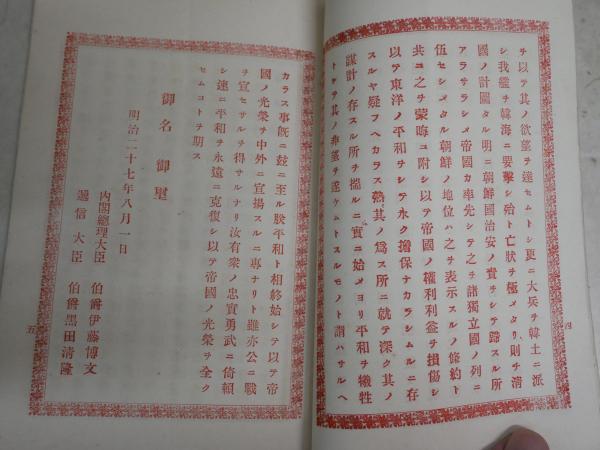 チ以テ其ノ欲望ヲ達セムトシ更ニ大兵ヲ韓土ニ派
シ我艦ヲ韓海ニ要撃シ殆ト亡狀ヲ極メタリ則チ淸
國ノ計圖タル明ニ朝鮮國治安ノ責ヲシテ歸スル所
アラサラシメ帝國カ率先シテ之ヲ諸獨立國ノ列ニ
伍セシメタル朝鮮ノ地位ハ之ヲ表示スルノ條約ト
共ニ之ヲ蒙晦ニ附シ以テ帝國ノ權利利益ヲ損傷シ
以テ東洋ノ平和ヲシテ永ク擔保ナカラシムルニ存
スルヤ疑フヘカラス熟其ノ爲ス所ニ就テ深ク其ノ
謀計ノ存スル所ヲ揣ルニ實ニ始メヨリ平和ヲ犧牲
トシテ其ノ非望ヲ遂ケムトスルモノト謂ハサルヘ
四
カラス事旣ニ玆ニ至ル朕平和ト相終始シテ以テ帝
國ノ光榮ヲ中外ニ宣揚スルニ專ナリト雖亦公ニ戰
ヲ宣セサルヲ得サルナリ汝有衆ノ忠實勇武ニ倚賴
シ速ニ平和ヲ永遠ニ克復シ以テ帝國ノ光榮ヲ全ク
セムコトヲ期ス
御名御璽
明治二十七年八月一日
內閣總理大臣 伯爵伊藤博文
遞信大臣 伯爵黑田淸隆
五